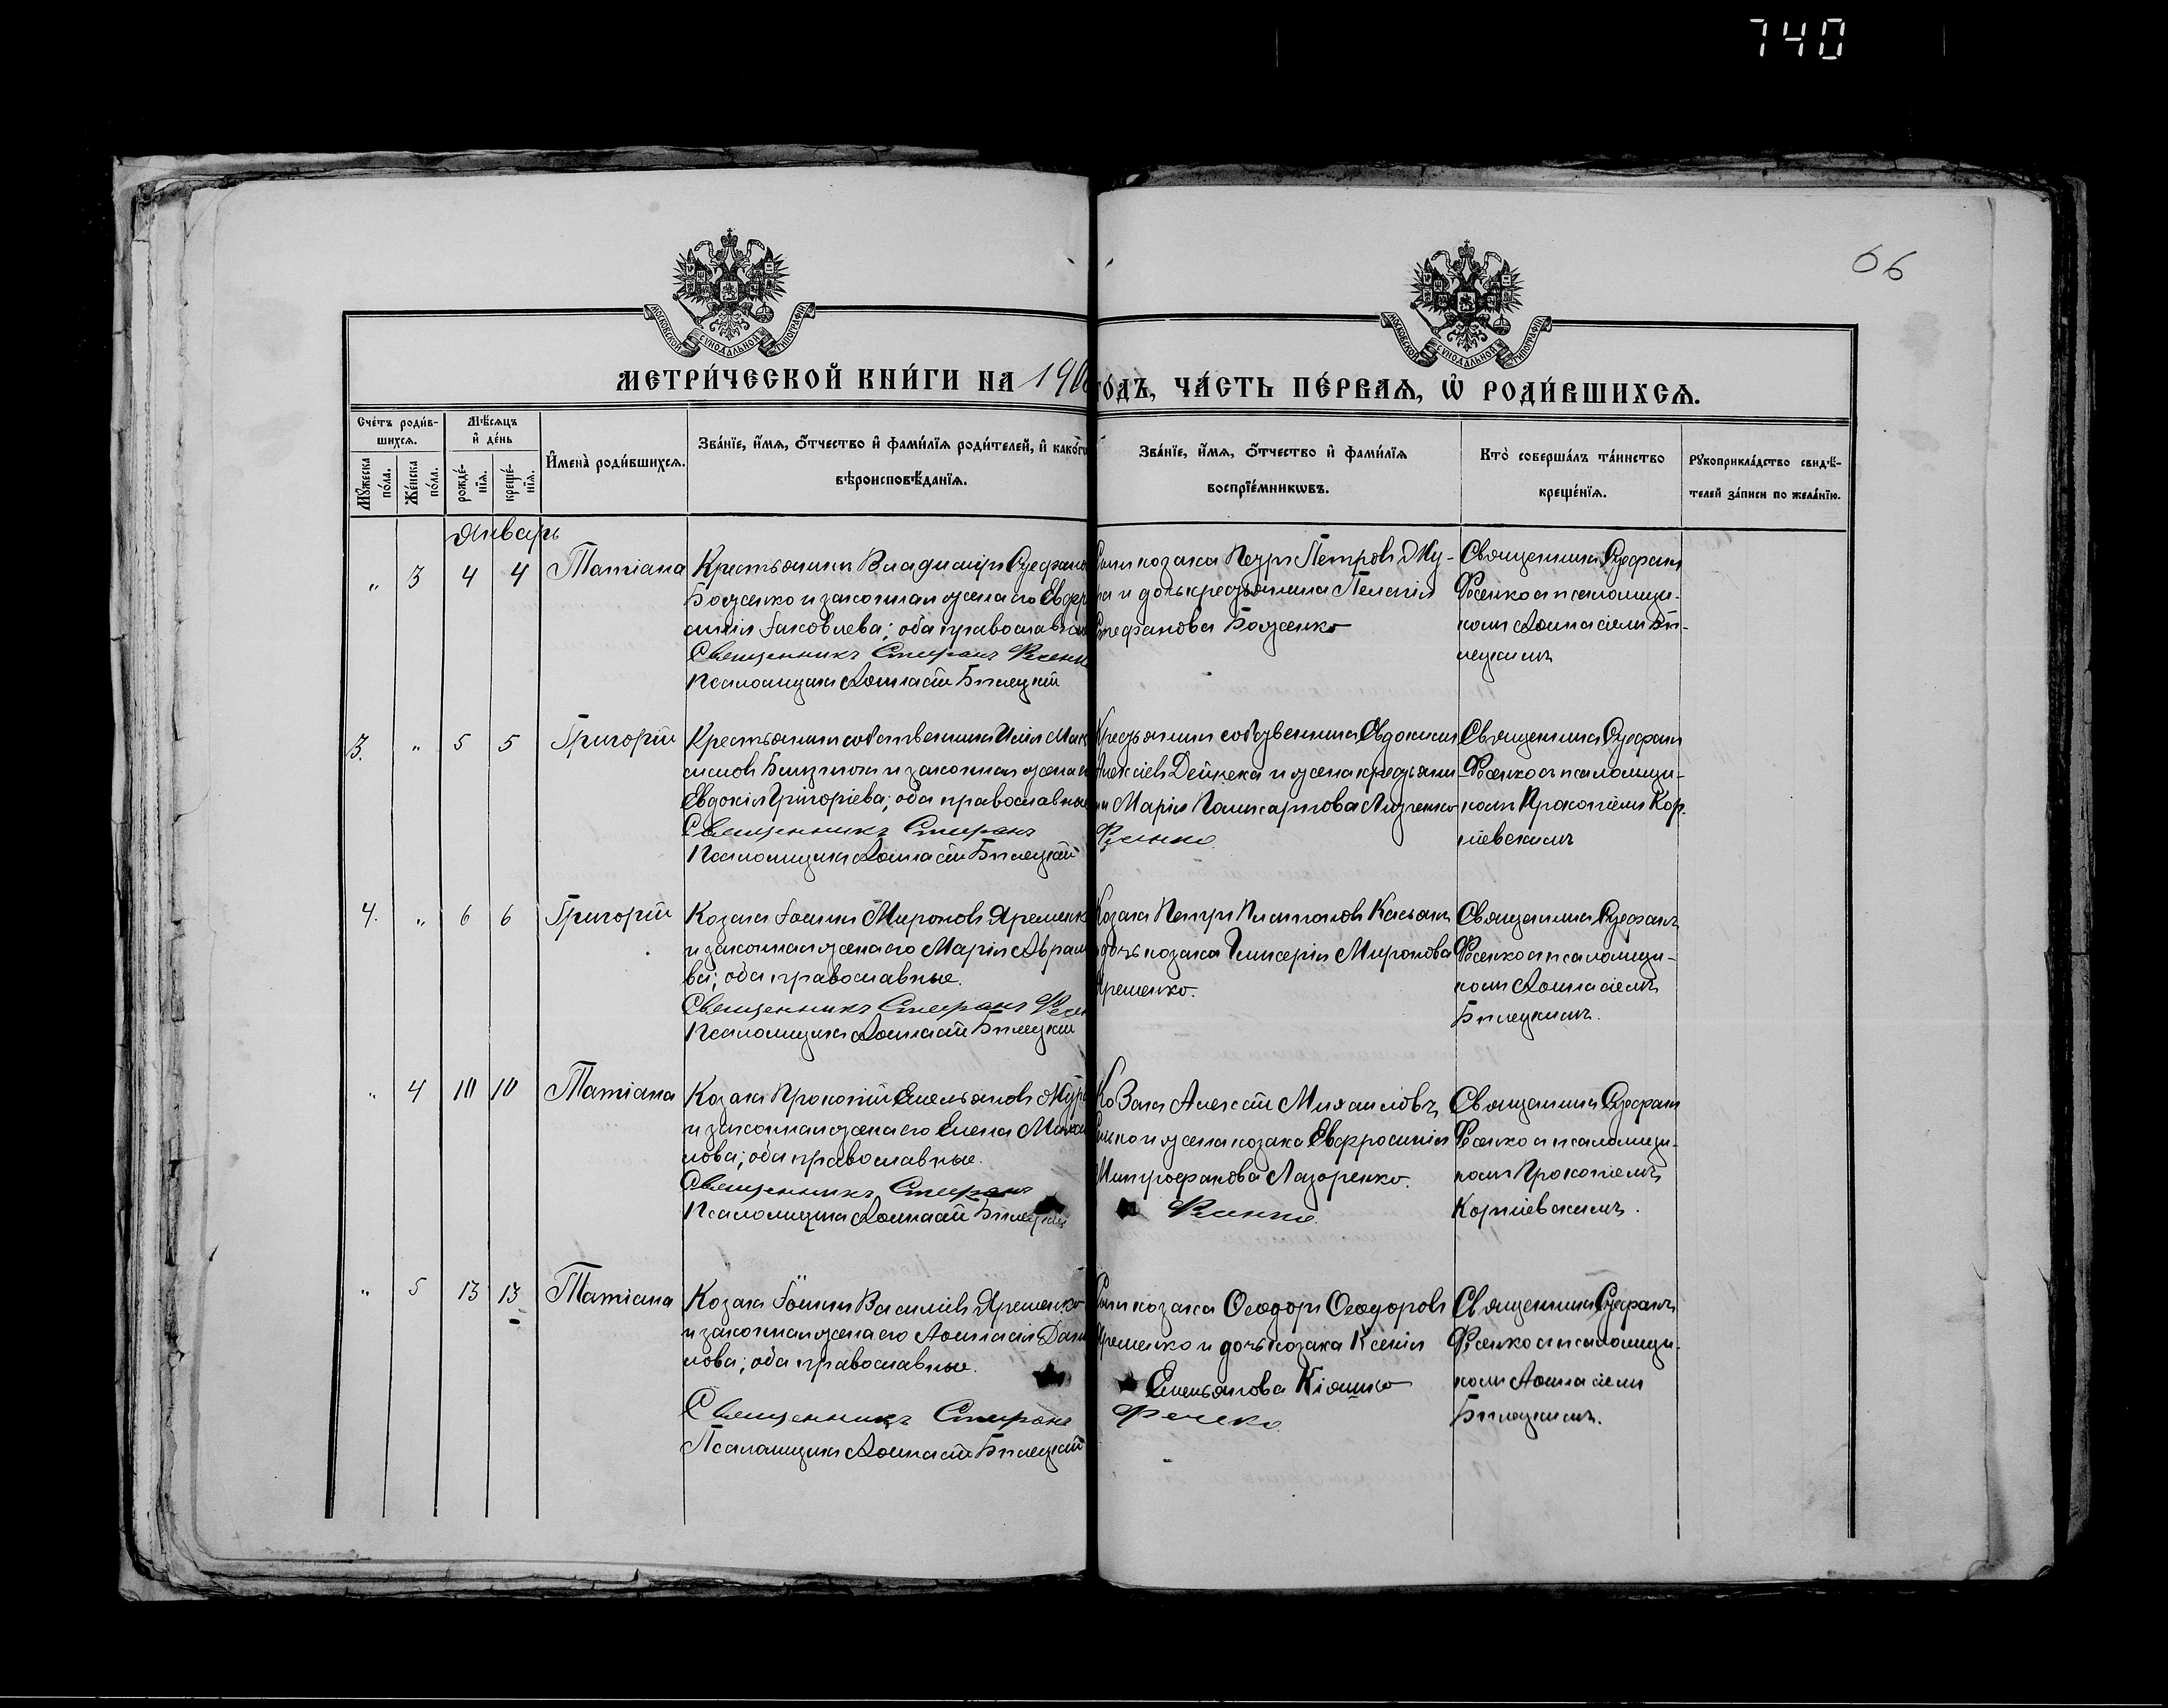 740
66
МОСКОВСКОЙ СѴНОДАЛЬНОЙ ТИПОГРАФІИ
МОСКОВСКОЙ СѴНОДАЛЬНОЙ ТИПОГРАФІИ
МЕТРИ́ЧЕСКОЙ КНИ́ГИ НА 190
го́дъ, ЧА́СТЬ ПЕ́РВАѦ, Ѡ҆ РОДИ́ВШИХСѦ.
Сче́тъ роди́в-
шихсѧ.
Мѣ́сѧцъ
и҆ де́нь
Мꙋ́жеска по́ла.
Же́нска по́ла.
рожде́-
нїѧ.
креще́-
нїѧ.
И҆мена̀ роди́вшихсѧ.
Зва́нїе, и҆́мѧ, ѻ҆́тчество и҆ фами́лїѧ роди́телей, и҆ како́гѡ
вѣроисповѣ́данїѧ.
Зва́нїе, и҆́мѧ, ѻ҆́тчество и҆ фами́лїѧ
воспрїе́мникѡвъ.
Кто̀ соверша́лъ та́инство
креще́нїѧ.
Рꙋкоприкла́дство свидѣ́-
телей за́писи по жела́нїю.
Январь
„ 3 4 4 Татіана
Крестьянинъ Владиміръ Стефанов
Боженко и законная жена его Евфро
синія Іаковлева; оба православные
Священникъ Стефанъ Фесенко
Псаломщикъ Аѳанасій Билецкій
Сынъ козака Петръ Петровъ
и дочь крестьянина Пелагія
Стефанова Боженко
Священникъ Стефанъ
Фесенко съ псаломщи-
комъ Аѳанасіемъ Би-
лецкимъ
3. „ 5 5 Григорій
Крестьянинъ собственникъ Илія Мак
симовъ и законная жена его
Евдокія Григоріева; оба православные
Священникъ Стефанъ
Псаломщикъ Аѳанасій Билецкій
Крестьянинъ собственникъ Евдокимъ
Алексіевъ Дейнека и жена крестьяни
на Марія Поликарпова
Фесенко
Священникъ Стефанъ
Фесенко съ псаломщи-
комъ Прокопіемъ Кор-
ніевскимъ
4. „ 6 6 Григорій
Козакъ Іоаннъ Мироновъ Яременко
и законная жена его Марія Аврамо
ва; оба православные.
Священникъ Стефанъ Фесен
Псаломщикъ Аѳанасій Билецкій
Козакъ Петръ Платоновъ Касьян
и дочь козака Гликерія Миронова
Яременко.
Священникъ Стефанъ
Фесенко съ псаломщи-
комъ Аѳанасіемъ
Билецкимъ.
„ 4 10 10 Татіана
Козакъ Прокопій Емельяновъ
и законная жена его Елена Михаи
лова; оба православные.
Священникъ Стефанъ
Псаломщикъ Аѳанасій Билецкій
Козакъ Алексій Михаиловъ
и жена козака Евфросинія
Митрофанова Лазоренко.
Фесенко.
Священникъ Стефанъ
Фесенко съ псаломщи-
комъ Прокопіемъ
Корніевскимъ.
„ 5 13 13 Татіана
Козакъ Іоаннъ Василіевъ Яременко
и законная жена его Аѳанасія Дани
лова; оба православные.
Священникъ Стефанъ
Псаломщикъ Аѳанасій Билецкій
Сынъ козака Ѳеодоръ Ѳеодоровъ
Яременко и дочь козака Ксенія
Емельянова Кіяшко
Фесенко
Священникъ Стефанъ
Фесенко съ псаломщи-
комъ Аѳанасіемъ
Билецкимъ.